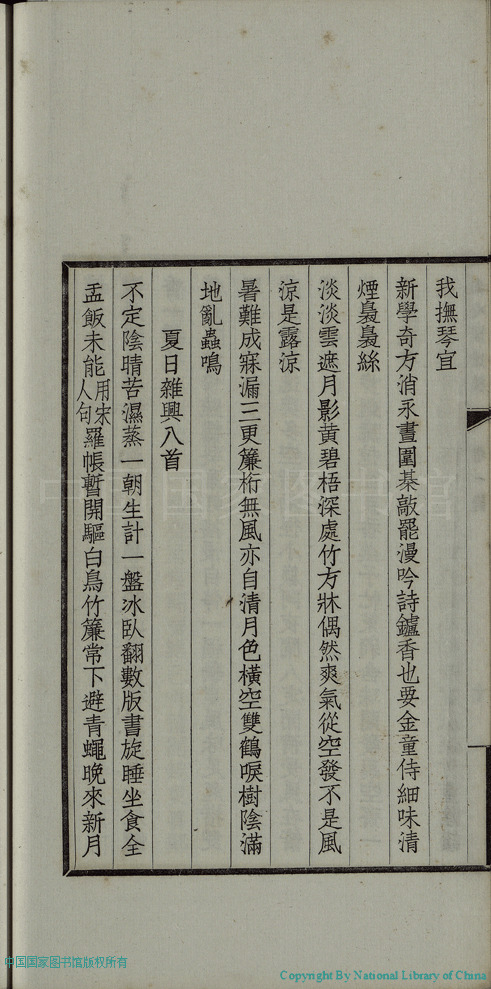 我撫琴宜
新學奇方消永晝圍棊敲罷漫吟詩鑪香也要金童侍細味清
煙裊裊絲
淡淡雲遮月影黃碧梧深處竹方牀偶然爽氣從空發不是風
涼是露涼
暑難成寐漏三更簾桁無風亦自清月色橫空雙鶴唳樹陰滿
地亂蟲鳴
夏日雜興八首
不定陰晴苦濕蒸一朝生計一盤冰臥翻數版書旋睡坐食全
盂飯未能用宋人句羅帳暫開驅白鳥竹簾常下避青蠅晚來新月
中国国家图书馆
中国国家图书馆版权所有
Copyright By National Library of China